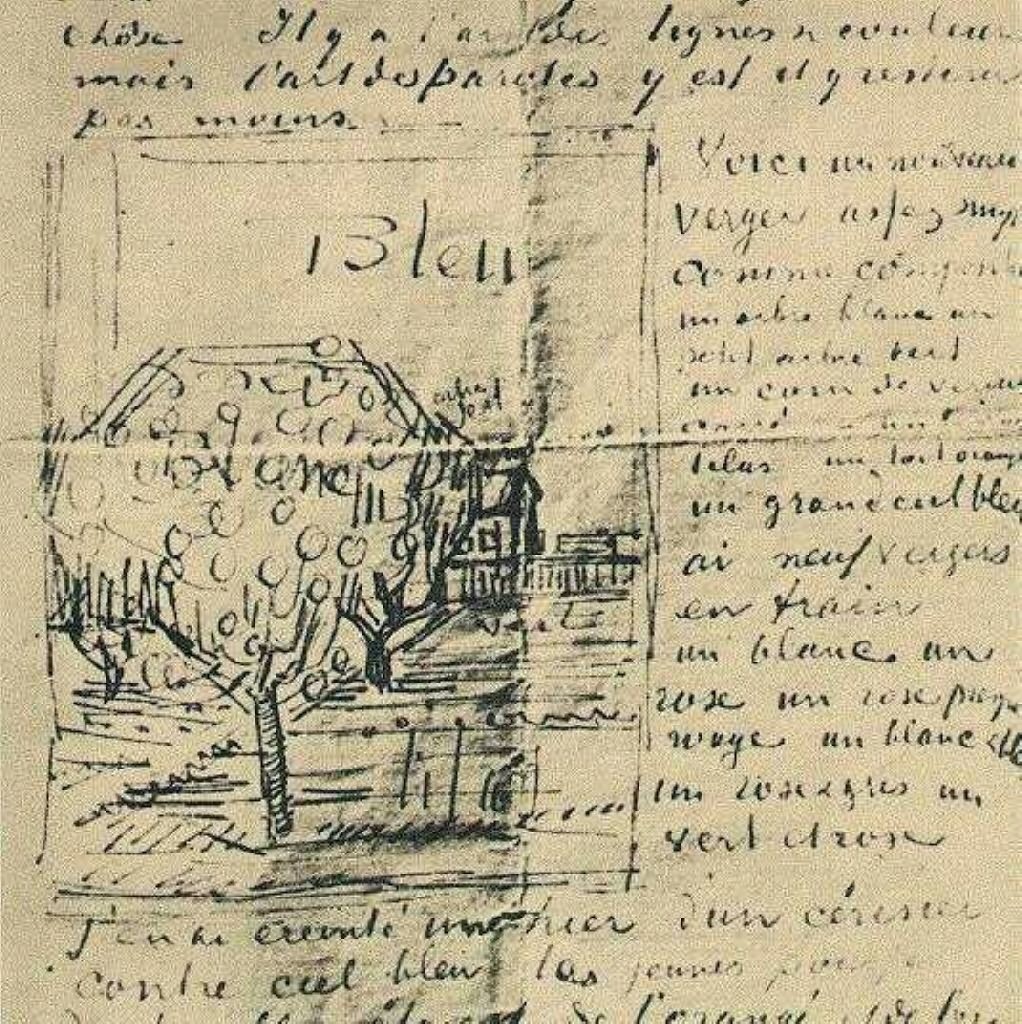 chose Il y a l'art des lignes & couleurs
mais l'art des paroles y est et y restera
pas moins.
Voici un nouveau
verger assez simple
comme composition
un arbre blanc un
petit arbre vert
un coin de verdure
lilas un toit orangé
un grand ciel bleu
ai neuf vergers
en train
un blanc un
rose un rose presque
rouge un blanc et bleu
un rose & gris un
vert et rose
Bleu
Blanc
verte
J'en ai éreinté un hier d'un cérisier
contre ciel bleu les jeunes
de l'orangé